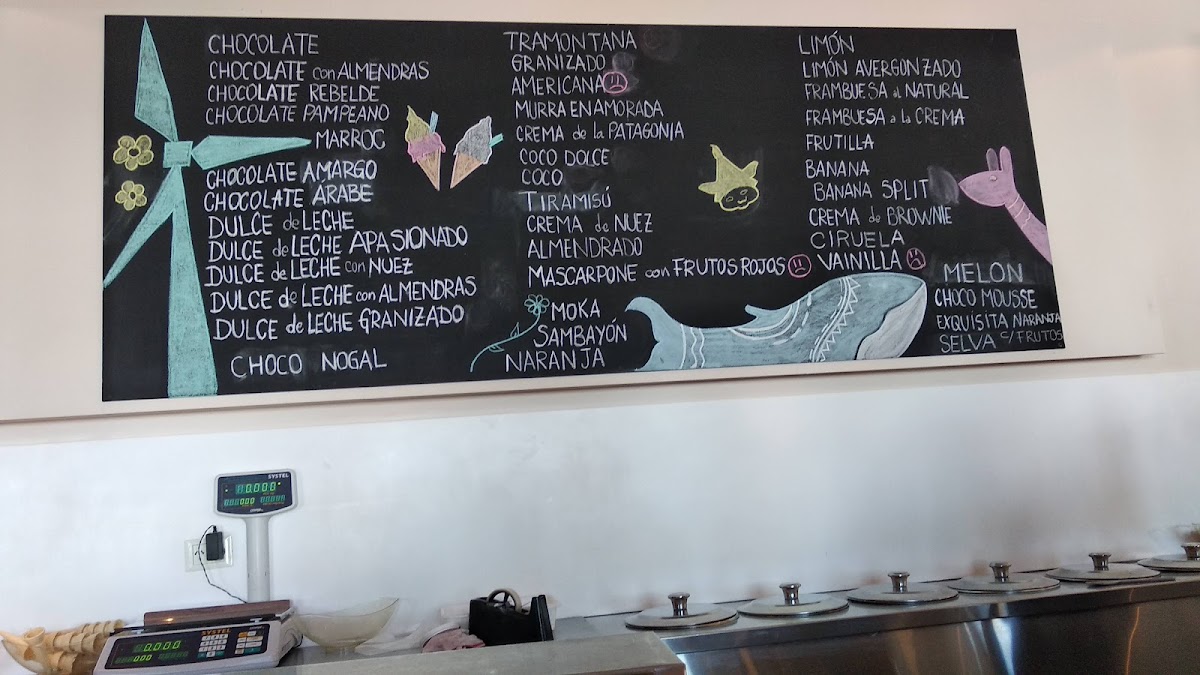 CHOCOLATE
CHOCOLATE con ALMENDRAS
CHOCOLATE REBELDE
CHOCOLATE PAMPEANO
MARROC
CHOCOLATE AMARGO
CHOCOLATE ARABE
DULCE de LECHE
DULCE de LECHE APASIONADO
DULCE de LECHE con NUEZ
DULCE de LECHE con ALMENDRAS
DULCE de LECHE GRANIZADO
CHOCO NOGAL
TRAMONTANA
GRANIZADO
AMERICANA
MURRA ENAMORADA
CREMA de la PATAGONIA
COCO DOLCE
COCO
TIRAMISÚ
CREMA de NUEZ
ALMENDRADO
MASCARPONE con FRUTOS ROJOS
MOKA
SAMBAYÓN
NARANJA
LIMÓN
LIMÓN AVERGONZADO
FRAMBUESA al NATURAL
FRAMBUESA a la CREMA
FRUTILLA
BANANA
BANANA SPLIT
CREMA de BROWNIE
CIRUELA
VAINILLA
MELON
CHOCO MOUSSE
EXQUISITA NARANJA
SELVA c/ FRUTOS
SYSTEL
0.000
SYSTEL
0.000
0.00